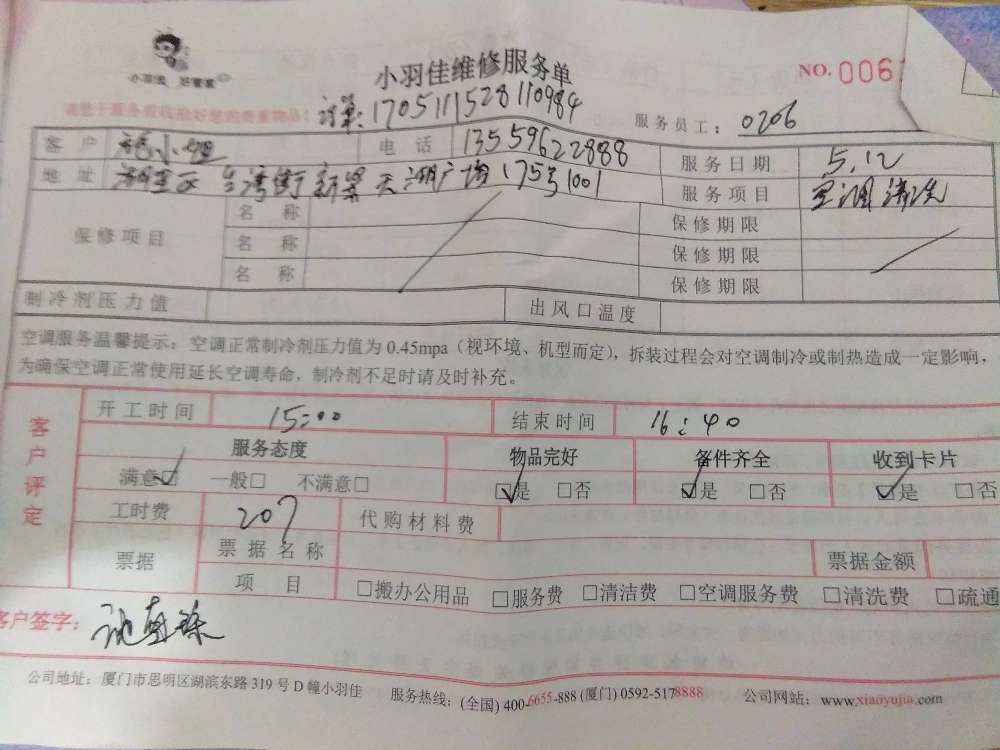 小羽佳 好管家
小羽佳维修服务单
NO. 006
请您于服务前收拾好您的贵重物品！
订单:1705111528110984
服务员工： 0206
客户 小姐 电话 13559622888 服务日期 5.12
地址 湖里区台湾街新景天湖广场175号1001 服务项目 空调清洗
保修项目 名称 保修期限
名称 保修期限
名称 保修期限
制冷剂压力值 出风口温度
空调服务温馨提示：空调正常制冷剂压力值为 0.45mpa（视环境、机型而定），拆装过程会对空调制冷或制热造成一定影响，
为确保空调正常使用延长空调寿命，制冷剂不足时请及时补充。
客户评定
开工时间 15:00 结束时间 16:40
服务态度 物品完好 备件齐全 收到卡片
满意☑ 一般□ 不满意□ ☑是 □否 ☑是 □否 ☑是 □否
工时费 207 代购材料费
票据 票据名称 票据金额
项目 □搬办公用品 □服务费 □清洁费 □空调服务费 □清洗费 □疏通
客户签字：
公司地址：厦门市思明区湖滨东路 319 号 D 幢小羽佳 服务热线：(全国) 400-6655-888 (厦门) 0592-5178888 公司网站：www.xiaoyujia.com